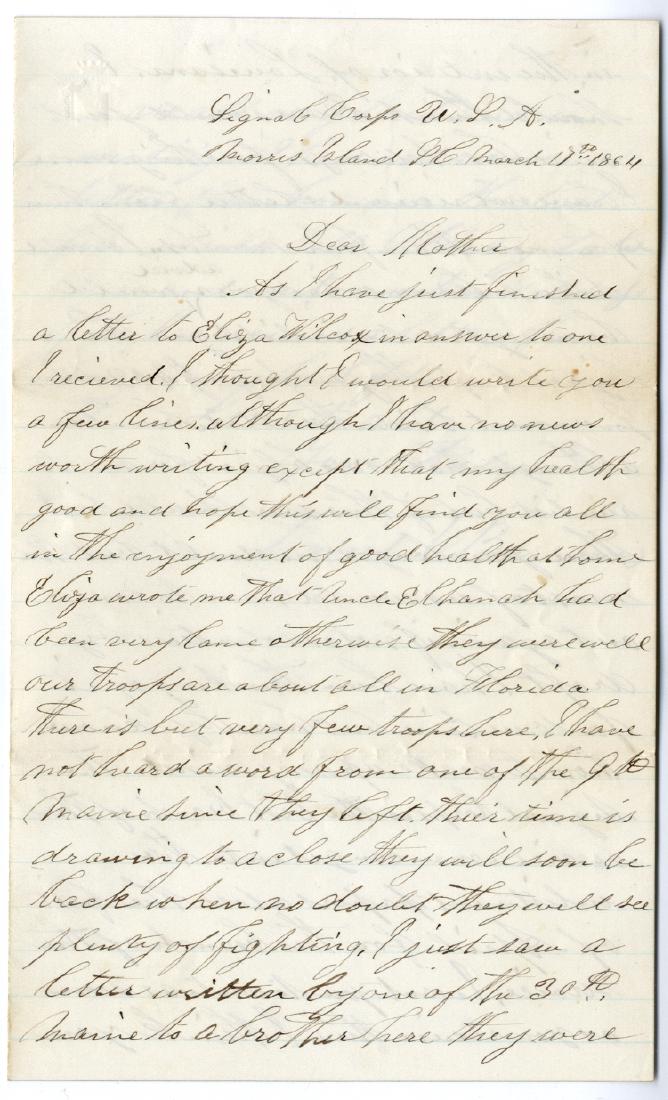 Signal Corps U. S. A.
Morris Island S. C March 1864
Dear Mother
As I have just finished
a letter to Eliza Wilcox in answer to one
I recieved. I thought I would write you
a few lines. although I have no news
worth writing except that my health
good and hope this will find you all
in the enjoyment of good health at home
Eliza wrote me that Uncle Elhanah had
been very lame otherwise they were well
our troops are about all in Florida
there is but very few troops here, I have
not heard a word from one of the 9th
Maine since they left. their time is
drawing to a close they will soon be
back when no doubt they will see
plenty of fighting, I just saw a
letter written by one of the 30th.
Maine to a brother here they were